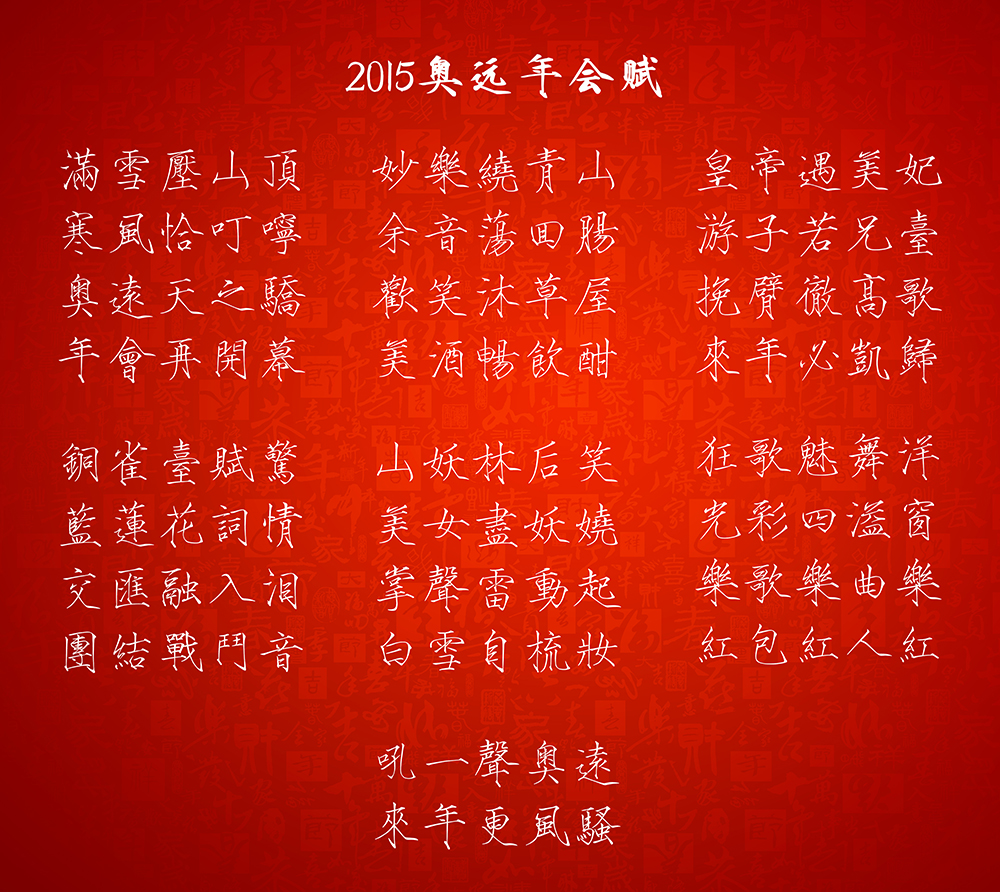 2015奥远年会赋
滿雪壓山頂
寒風恰叮嚀
奥遠天之驕
年會再開幕
妙樂繞青山
余音蕩回腸
歡笑沐草屋
美酒暢飲酣
皇帝遇美妃
游子若兄臺
挽臂徹高歌
來年必凱歸
銅雀臺賦驚
藍蓮花詞情
交匯融入泪
團結戰鬥音
山妖林后笑
美女盡妖嬈
掌聲雷動起
白雪自梳妝
狂歌魅舞洋
光彩四溢窗
樂歌樂曲樂
紅包紅人紅
吼一聲奥遠
來年更風騷